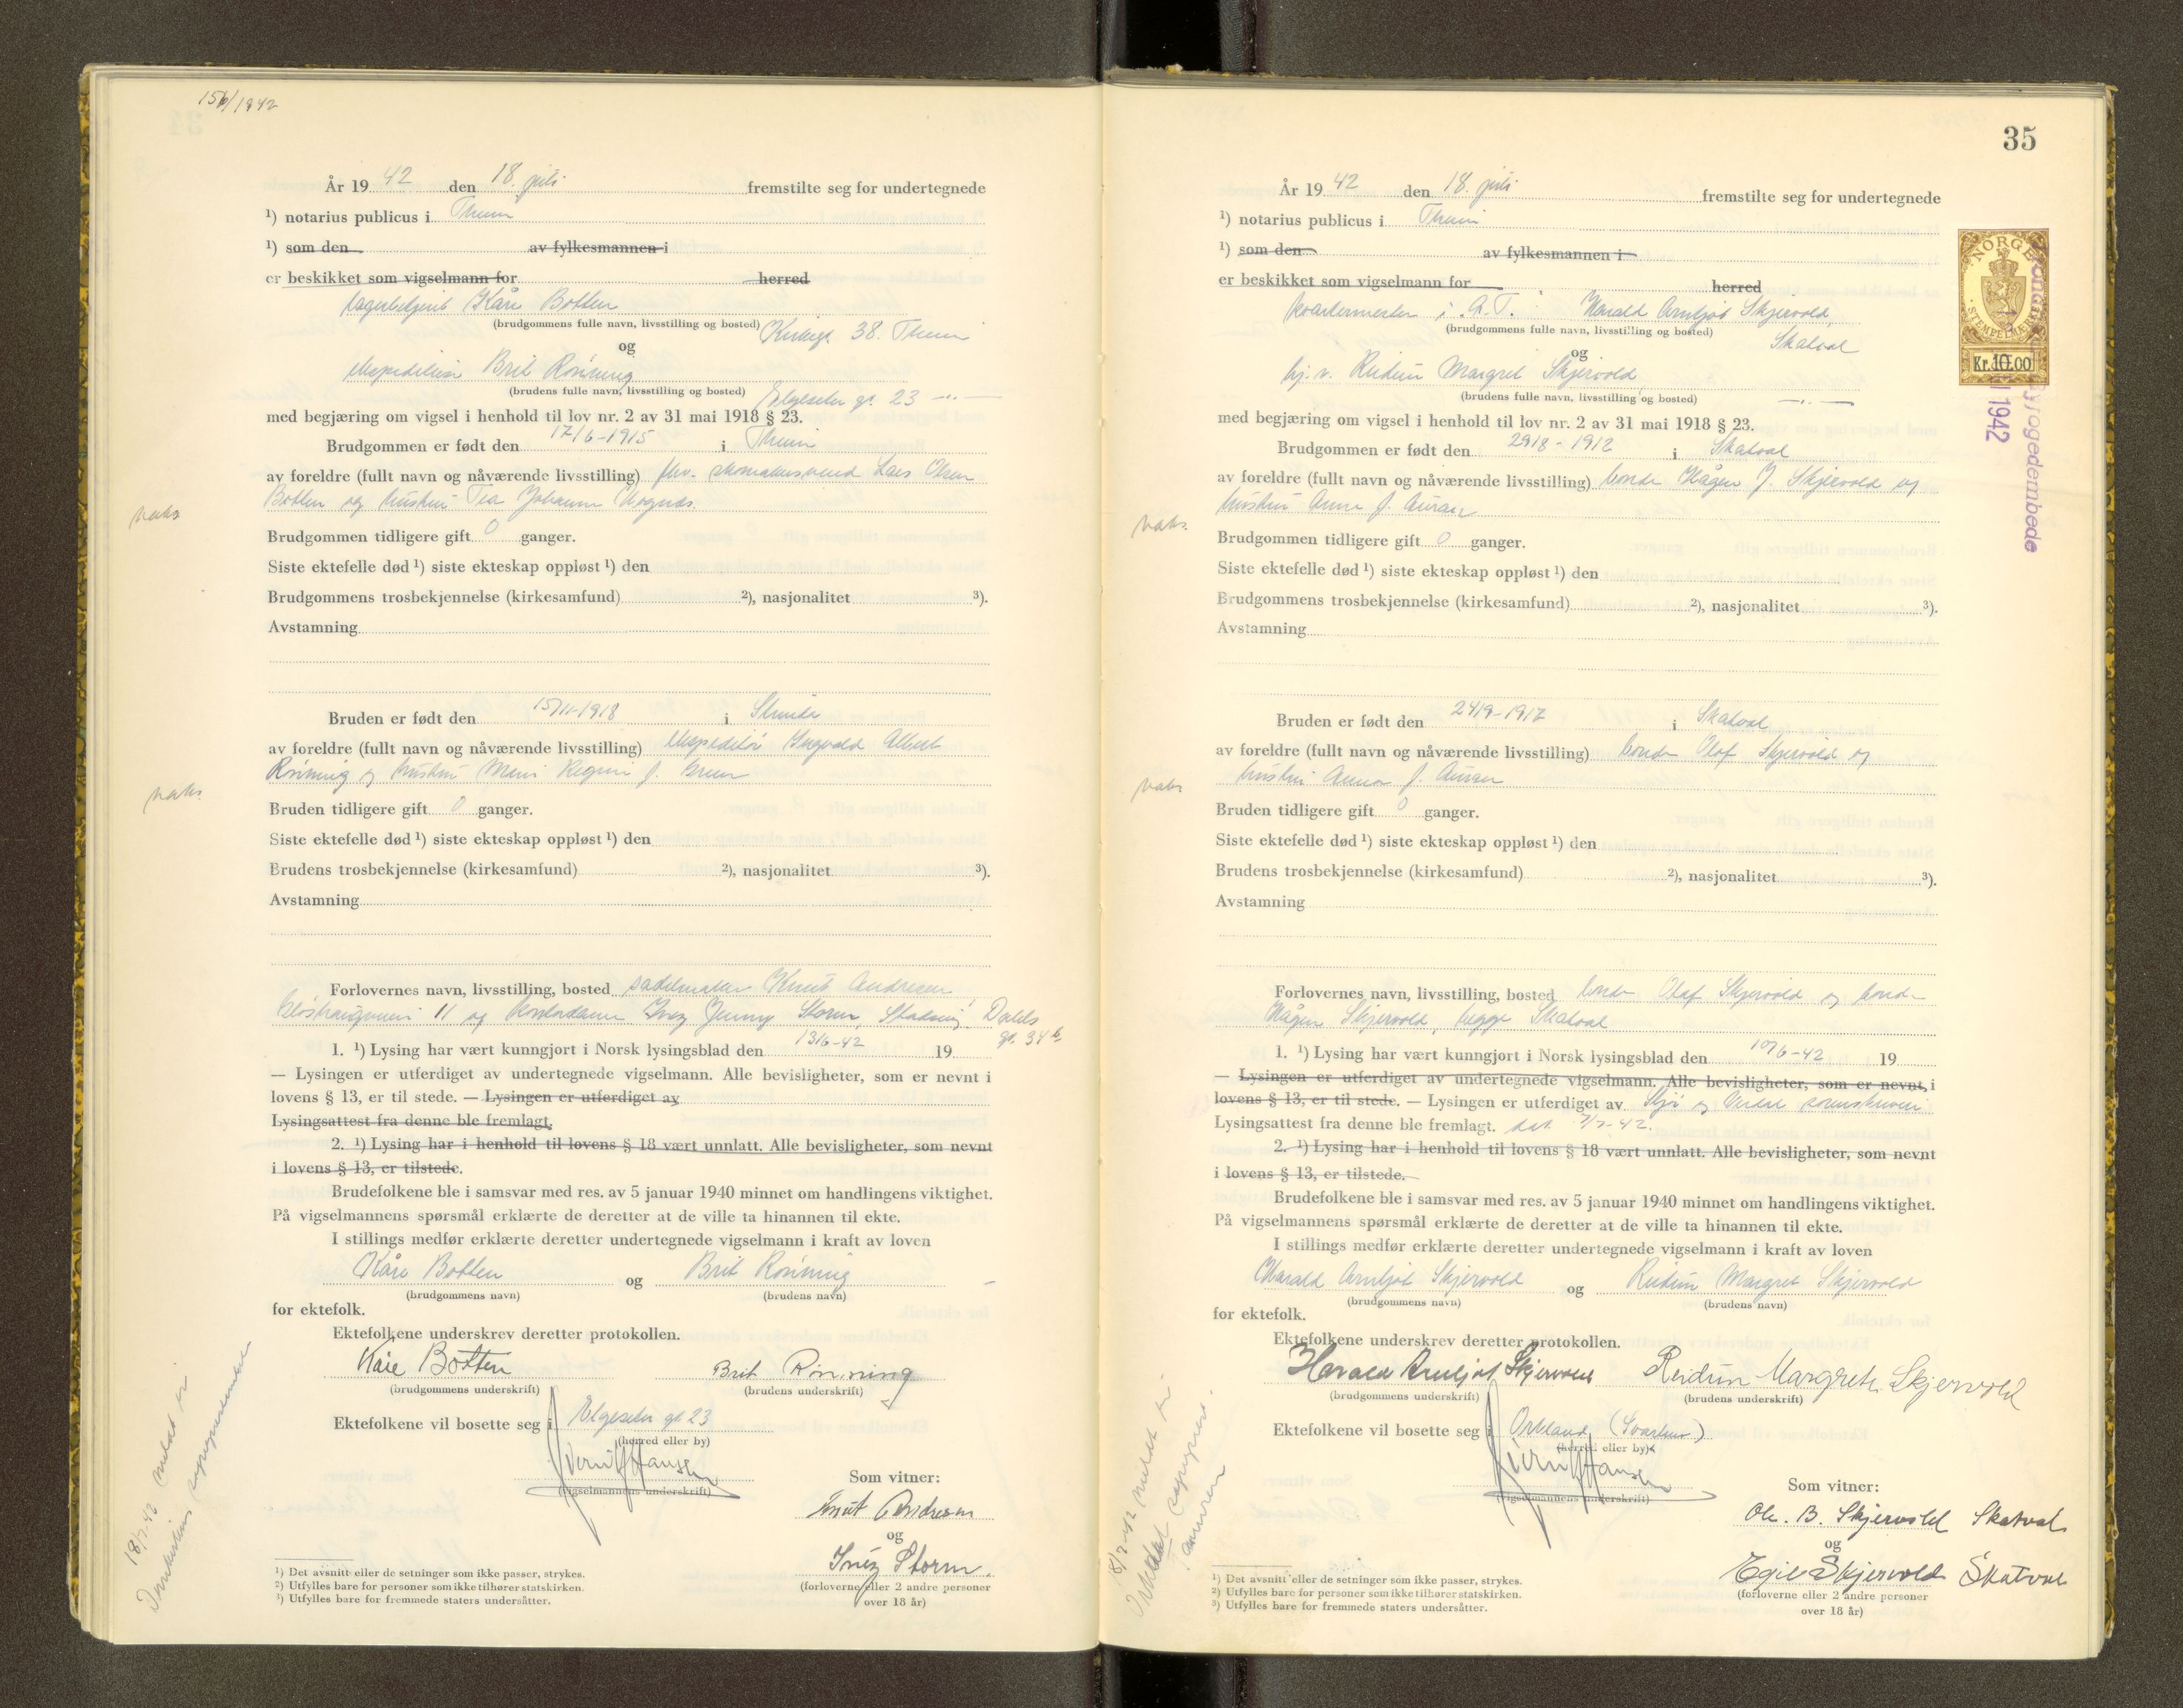 156/1942
År 1942 den 18. juli fremstilte seg for undertegnede
1) notarius publicus i Thrim
1) som den av fylkesmannen i
er beskikket som vigselmann for herred
lagerbetjent Kåre Botten
(brudgommens fulle navn, livsstilling og bosted) Kirkegt 38. Thrim
og
ekspeditrise Brit Rönning
(brudens fulle navn, livsstilling og bosted) Elgeseter gt. 23 —"—
med begjæring om vigsel i henhold til lov nr. 2 av 31 mai 1918 § 23.
Brudgommen er født den 17/6-1915 i Thrim
av foreldre (fullt navn og nåværende livsstilling) fhv. skomakersvend Lars Olsen
Botten og hustru Tea Johanne Hognes.
vaks.
Brudgommen tidligere gift 0 ganger.
Siste ektefelle død 1) siste ekteskap oppløst 1) den
Brudgommens trosbekjennelse (kirkesamfund) 2), nasjonalitet 3).
Avstamning
Bruden er født den 15/11-1918 i Strinda
av foreldre (fullt navn og nåværende livsstilling) ekspeditör Ingvald Albert
Rönning og hustru Regine f.
vaks.
Bruden tidligere gift 0 ganger.
Siste ektefelle død 1) siste ekteskap oppløst 1) den
Brudens trosbekjennelse (kirkesamfund) 2), nasjonalitet 3).
Avstamning
Forlovernes navn, livsstilling, bosted sadelmaker Knut Andresen
11 og kontordame Inez Jenny Storm, Dahls
gt. 34 b
1. 1) Lysing har vært kunngjort i Norsk lysingsblad den 13/6-42 19
— Lysingen er utferdiget av undertegnede vigselmann. Alle bevisligheter, som er nevnt i
lovens § 13, er til stede. — Lysingen er utferdiget av
Lysingsattest fra denne ble fremlagt.
2. 1) Lysing har i henhold til lovens § 18 vært unnlatt. Alle bevisligheter, som nevnt
i lovens § 13, er tilstede.
Brudefolkene ble i samsvar med res. av 5 januar 1940 minnet om handlingens viktighet.
På vigselmannens spørsmål erklærte de deretter at de ville ta hinannen til ekte.
I stillings medfør erklærte deretter undertegnede vigselmann i kraft av loven
Kåre Botten og Brit Rönning
(brudgommens navn) (brudens navn)
for ektefolk.
Ektefolkene underskrev deretter protokollen.
Kåre Botten Brit Rönning
(brudgommens underskrift) (brudens underskrift)
Ektefolkene vil bosette seg i Elgeseter gt 23
(herred eller by)
(vigselmannens underskrift)
Som vitner:
Knut Andresen
og
Inez Storm.
(forloverne eller 2 andre personer
over 18 år)
18/7-42 meldt til
Domkirkens sogneprestembete
1) Det avsnitt eller de setninger som ikke passer, strykes.
2) Utfylles bare for personer som ikke tilhører statskirken.
3) Utfylles bare for fremmede staters undersåtter.
35
År 1942 den 18. juli fremstilte seg for undertegnede
1) notarius publicus i Thrim
1) som den av fylkesmannen i
er beskikket som vigselmann for herred
kvartermester i A.T. Harald Arnljot Skjervold,
(brudgommens fulle navn, livsstilling og bosted) Skatval
og
hj.v. Reidun Margret Skjervold
(brudens fulle navn, livsstilling og bosted) —"—
med begjæring om vigsel i henhold til lov nr. 2 av 31 mai 1918 § 23.
Brudgommen er født den 29/8-1912 i Skatval
av foreldre (fullt navn og nåværende livsstilling) bonde Hågen J. Skjervold og
hustru Anna f. Auran
vaks.
Brudgommen tidligere gift 0 ganger.
Siste ektefelle død 1) siste ekteskap oppløst 1) den
Brudgommens trosbekjennelse (kirkesamfund) 2), nasjonalitet 3).
Avstamning
Bruden er født den 24/9-1917 i Skatval
av foreldre (fullt navn og nåværende livsstilling) bonde Olaf Skjervold og
hustru Anna f. Auran
vaks
Bruden tidligere gift 0 ganger.
Siste ektefelle død 1) siste ekteskap oppløst 1) den
Brudens trosbekjennelse (kirkesamfund) 2), nasjonalitet 3).
Avstamning
Forlovernes navn, livsstilling, bosted bonde Olaf Skjervold og bonde
Hågen Skjervold, begge Skatval
1. 1) Lysing har vært kunngjort i Norsk lysingsblad den 10/6-42 19
— Lysingen er utferdiget av undertegnede vigselmann. Alle bevisligheter, som er nevnt i
lovens § 13, er til stede. — Lysingen er utferdiget av Stjör og Verdal sorenskriveri
Lysingsattest fra denne ble fremlagt. dat. 7/7-42.
2. 1) Lysing har i henhold til lovens § 18 vært unnlatt. Alle bevisligheter, som nevnt
i lovens § 13, er tilstede.
Brudefolkene ble i samsvar med res. av 5 januar 1940 minnet om handlingens viktighet.
På vigselmannens spørsmål erklærte de deretter at de ville ta hinannen til ekte.
I stillings medfør erklærte deretter undertegnede vigselmann i kraft av loven
Harald Arnljot Skjervold og Reidun Margret Skjervold
(brudgommens navn) (brudens navn)
for ektefolk.
Ektefolkene underskrev deretter protokollen.
Harald Arnljot Skjervold Reidun Margrete Skjervold
(brudgommens underskrift) (brudens underskrift)
Ektefolkene vil bosette seg i Orkland (Svorkmo)
(herred eller by)
(vigselmannens underskrift)
Som vitner:
Ole. B. Skjervold Skatval
og
Egil Skjervold Skatval
(forloverne eller 2 andre personer
over 18 år)
18/7-42 meldt til
1) Det avsnitt eller de setninger som ikke passer, strykes.
2) Utfylles bare for personer som ikke tilhører statskirken.
3) Utfylles bare for fremmede staters undersåtter.
NORGE
STEMPELMERKE
Kr. 10.00
1942